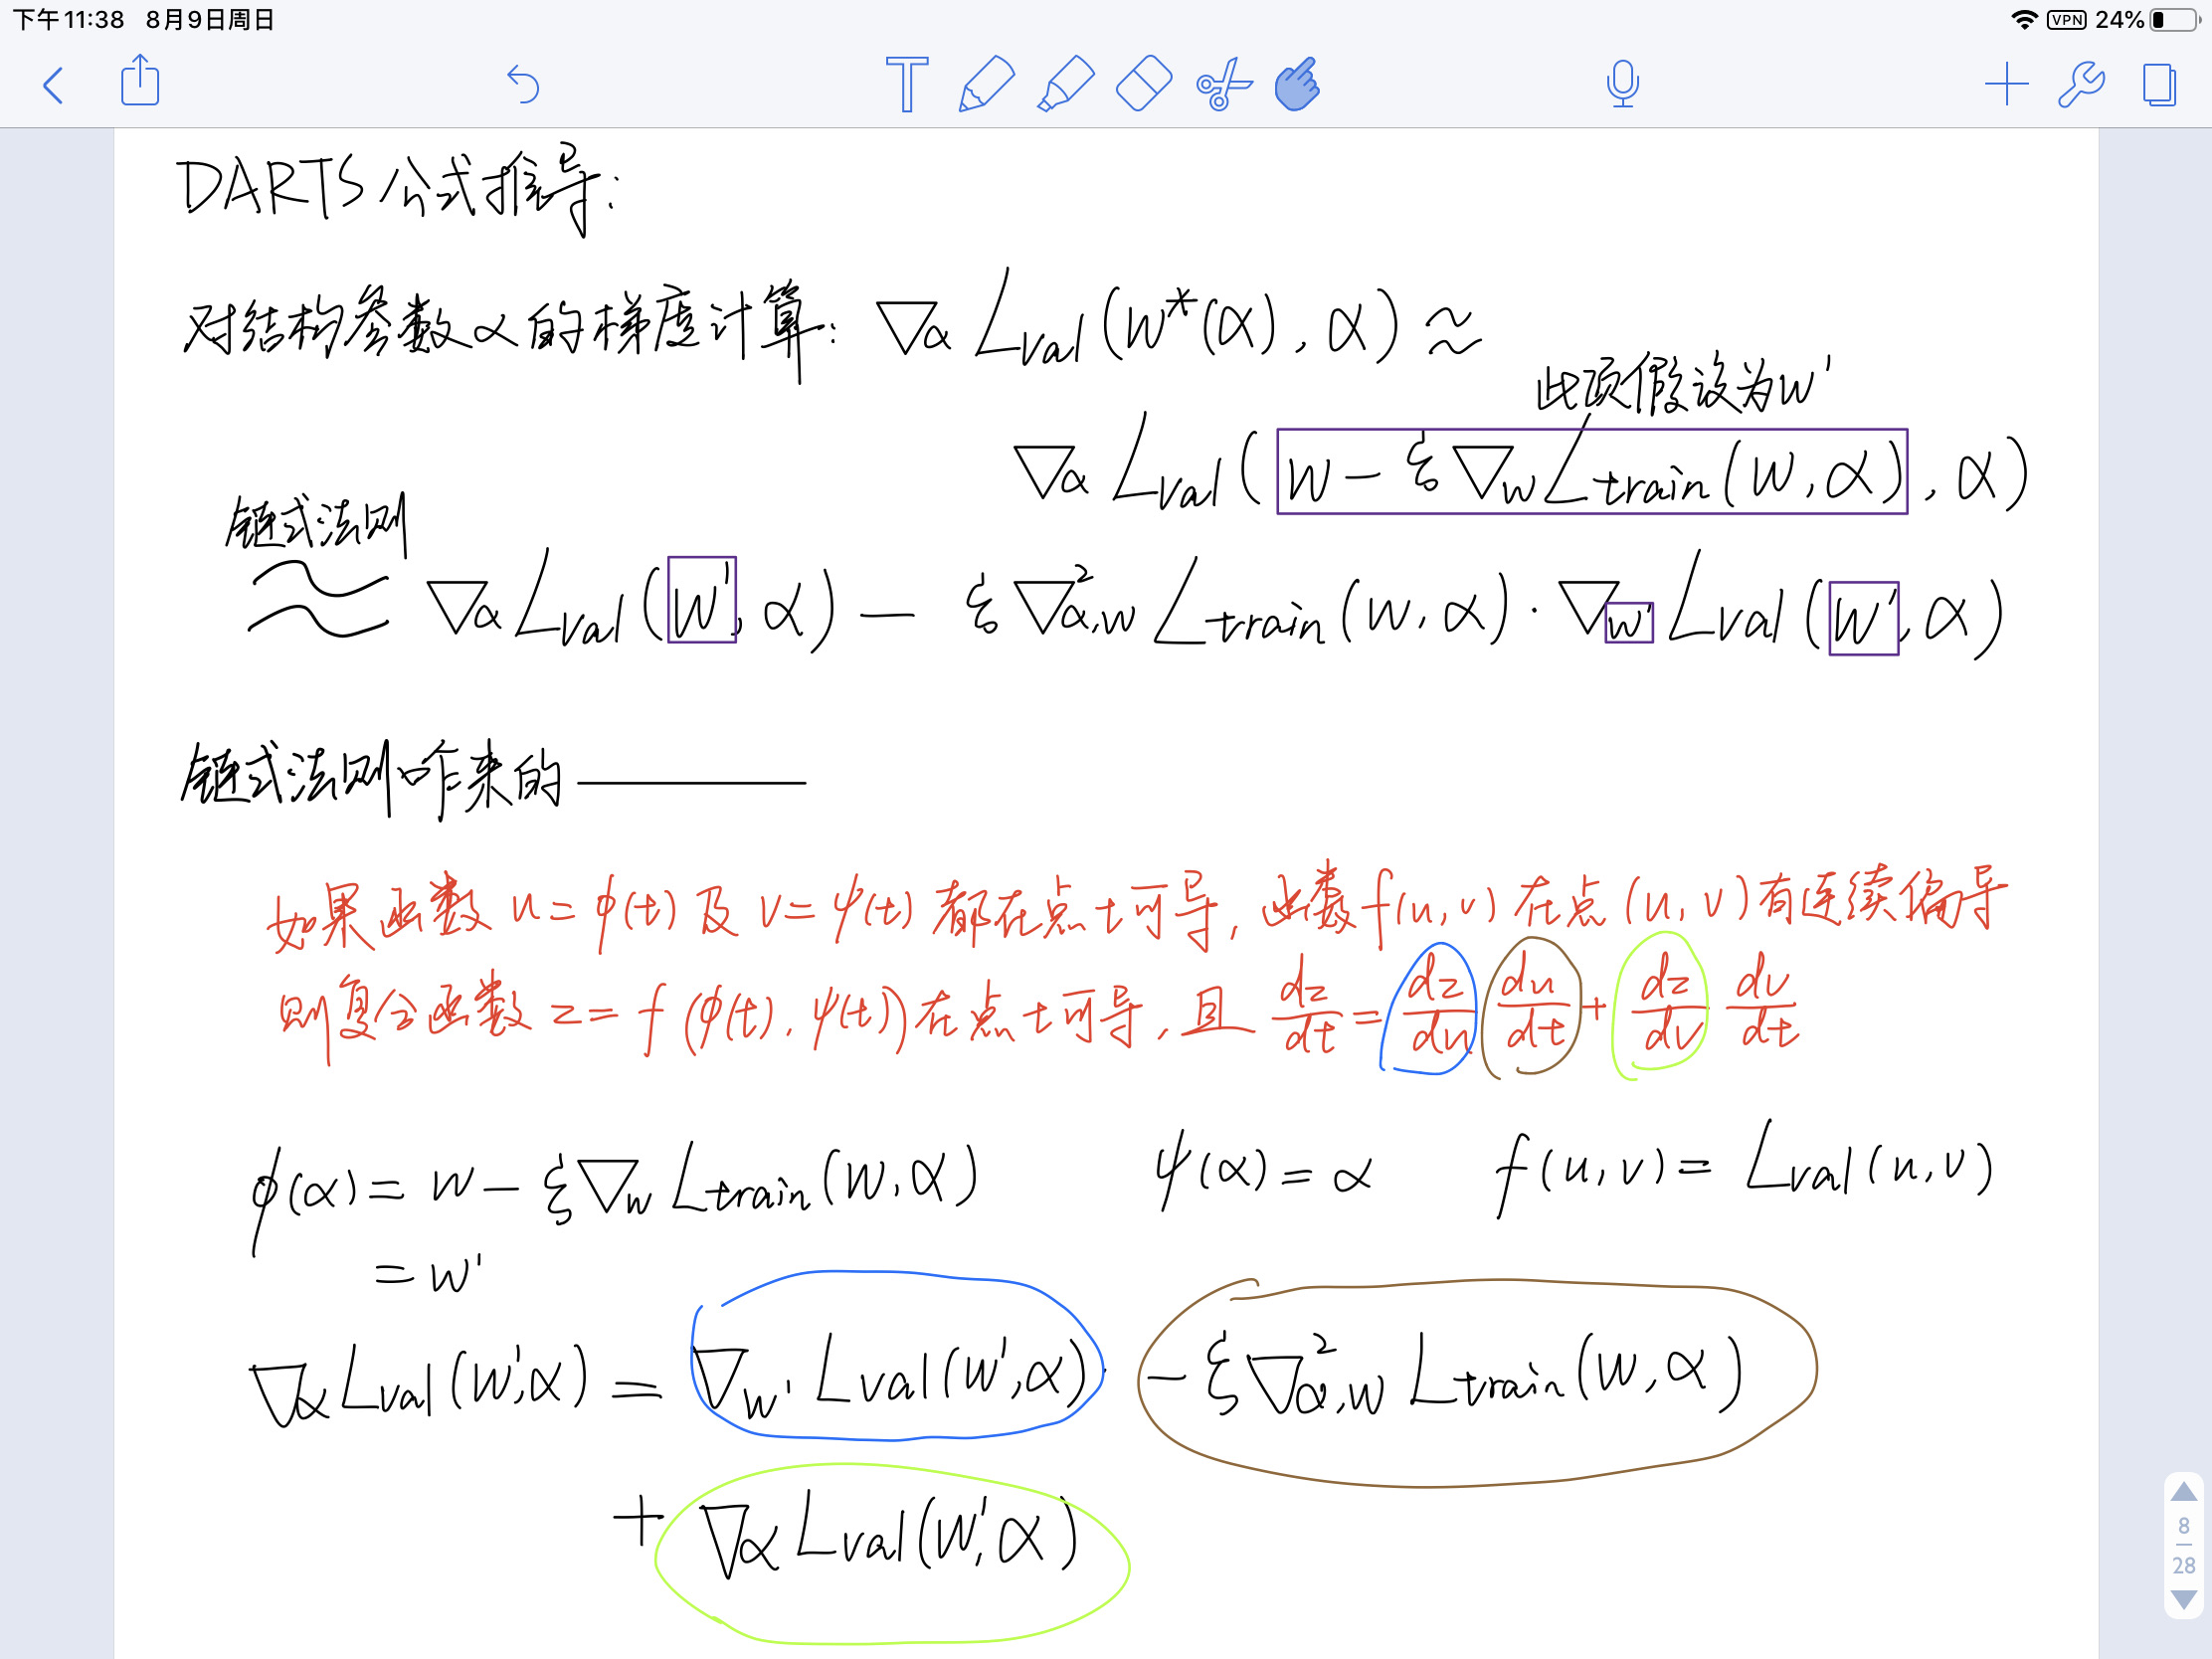 下午11:38 8月9日周日
VPN 24%
T
DARTS 公式推导:
对结构参数α的梯度计算: ∇α Lval(W*(α), α) ≈
此项假设为W'
∇α Lval(W - ξ∇w Ltrain(W,α), α)
链式法则
≈ ∇α Lval(W', α) - ξ∇²α,w Ltrain(W,α)·∇w' Lval(W',α)
链式法则咋来的——
如果函数 u=φ(t) 及 v=ψ(t) 都在点t可导, 函数f(u,v)在点(u,v)有连续偏导
则复合函数 z= f(φ(t), ψ(t))在点t可导, 且 dz/dt = dz/du du/dt + dz/dv dv/dt
φ(α)= W - ξ∇w Ltrain(W,α) ψ(α)=α f(u,v)= Lval(u,v)
= W'
∇α Lval(W',α) = ∇w' Lval(W',α)· -ξ∇²α,w Ltrain(W,α)
+ ∇α Lval(W',α)
8
28